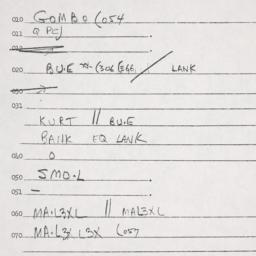 010 GOMBO (054
Q PEJ
011
012
020 BU.E ** (306 (366. / LANK
030
031
KURT || BU.E
BANK EQ LANK
040 0
050 SMO.L
051 —
060 MA.L3XL || MAL3XL
070 MA.L3X L3X (057